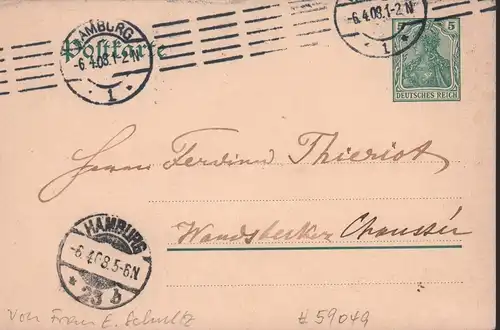 HAMBURG
-6.4.08.1-2N
1
Postkarte
-6.4.08.1-2N
1
5
DEUTSCHES REICH
Herrn Ferdinand Thieriot
Wandsbecker Chaussée
HAMBURG
-6.4.08.5-6N
* 23 b
Von Frau E. Schultz
# 59049